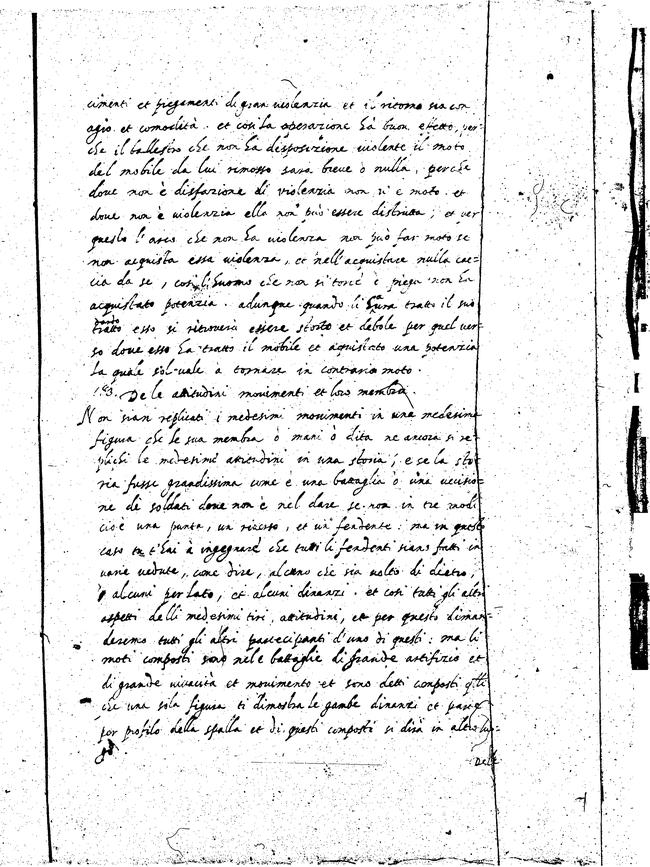 cimenti et piegamenti di gran violenzia et il ritorno sia con
agio et comodità. et così la operazione hà buon effetto, per-
che il ballestro che non ha disposizione violente il moto
del mobile da lui rimosso sara breve ò nulla, perche
dove non è disfazione di violenzia non vi è moto. et
dove non è violenzia ella non può essere distrutta; et per
questo l'arco che non ha violenza non può far moto se
non acquista essa violenza, et nell'acquistare nulla cac-
cia da se, così l'huomo che non si torce è piega non ha
acquistato potenzia. adunque quando li hara tratto il suo
dardo
tratto esso si ritroverà essere storto et debole per quel ver-
so dove esso ha tratto il mobile et aquistato una potenzia
la quale sol vale à tornare in contrario moto.
183. De le attitudini movimenti et loro membra.
Non sian replicati i medesimi movimenti in una medesima
figura che le sua membra ò mani ò dita ne ancora si re-
plichi le medesime attitudini in una storia; e se la sto-
ria fusse grandissima come è una battaglia ò una uccisio-
ne di soldati dove non è nel dare se non in tre modi
cioè una punta, un riverso, et un fendente: ma in questo
caso tu t'hai à ingegnare che tutti li fendenti siano fatti in
varie vedute, come dire, alcuno che sia volto di dietro,
alcuni per lato, et alcuni dinanzi. et così tutti gli altri
aspetti delli medesimi tiri, attitudini, et per questo diman-
deremo tutti gli altri partecipanti d'uno di questi: ma li
moti composti sono nele battaglie di grande artifizio et
di grande vivacità et movimento et sono detti composti
che una sola figura ti dimostra le gambe dinanzi et parte
per profilo della spalla et di questi composti si dirà in altro luo-
go
Delle